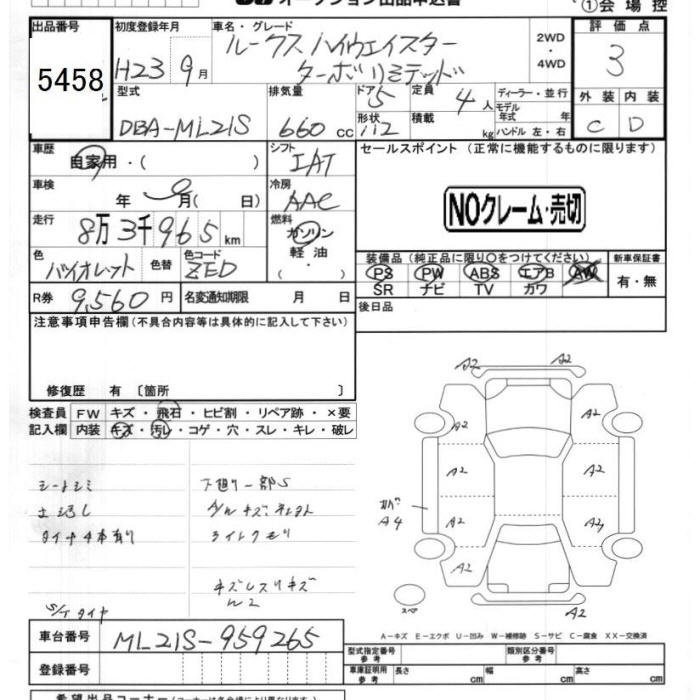 オークション出品申込書
①会場控
出品番号
5458
初度登録年月
H23 9月
車名・グレード
ルークス ハイウェイスター
ターボリミテッド
2WD
・
4WD
評価点
3
型式
DBA-ML21S
排気量
660 cc
ドア 5
形状 112
定員 4人
積載 kg
ディーラー・並行
モデル年式 年
ハンドル 左・右
外装 内装
C D
車歴
自家用・( )
シフト
IAT
セールスポイント (正常に機能するものに限ります)
NOクレーム・売切
車検
年 月( 日)
冷房
AAC
走行
8万3千965km
燃料
ガソリン
軽油
・( )
色
バイオレット
色替
色コード
ZED
装備品 (純正品に限り○をつけてください)
PS PW ABS エアB AW
SR ナビ TV カワ
新車保証書
有・無
R券 9,560円
名変通知期限 月 日
後日品
注意事項申告欄(不具合内容等は具体的に記入して下さい)
修復歴 有 〔箇所 〕
検査員記入欄
FW キズ・飛石・ヒビ割・リペア跡・×要
内装 キズ・汚レ・コゲ・穴・スレ・キレ・破レ
シートシミ
下廻り一部S
タイヤ4本有り
ライトクモリ
S/Tタイヤ
W2
A2
A2
A2
A2
A2
A2
A2
A2
A4
A2
A2
A2
スペア
A-キズ E-エクボ U-凹み W-補修跡 S-サビ C-腐食 XX-交換済
車台番号
ML21S-959265
登録番号
型式指定番号
参考
類別区分番号
参考
車庫証明用
参考
長さ cm
幅 cm
高さ cm
希望出品コーナー